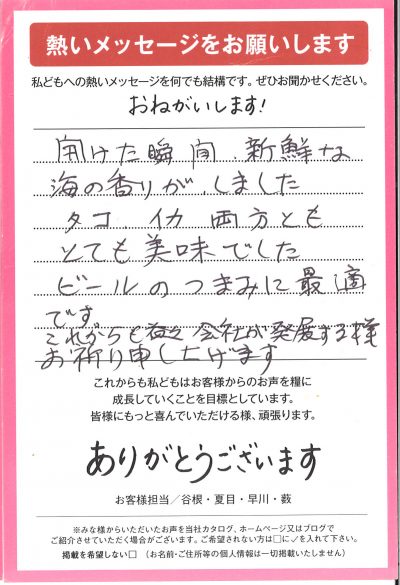 熱いメッセージをお願いします
私どもへの熱いメッセージを何でも結構です。ぜひお聞かせください。
おねがいします!
開けた瞬間、新鮮な
海の香りがしました
タコ、イカ両方とも
とても美味でした
ビールのつまみに最適
です
これからも益々会社が発展する様
お祈り申し上げます
これからも私どもはお客様からのお声を糧に
成長していくことを目標としています。
皆様にもっと喜んでいただける様、頑張ります。
ありがとうございます
お客様担当／谷根・夏目・早川・薮
※みな様からいただいたお声を当社カタログ、ホームページ又はブログで
ご紹介させていただく場合がございます。ご希望されない方は□に✓を入れて下さい。
掲載を希望しない□ （お名前・ご住所等の個人情報は一切掲載いたしません）